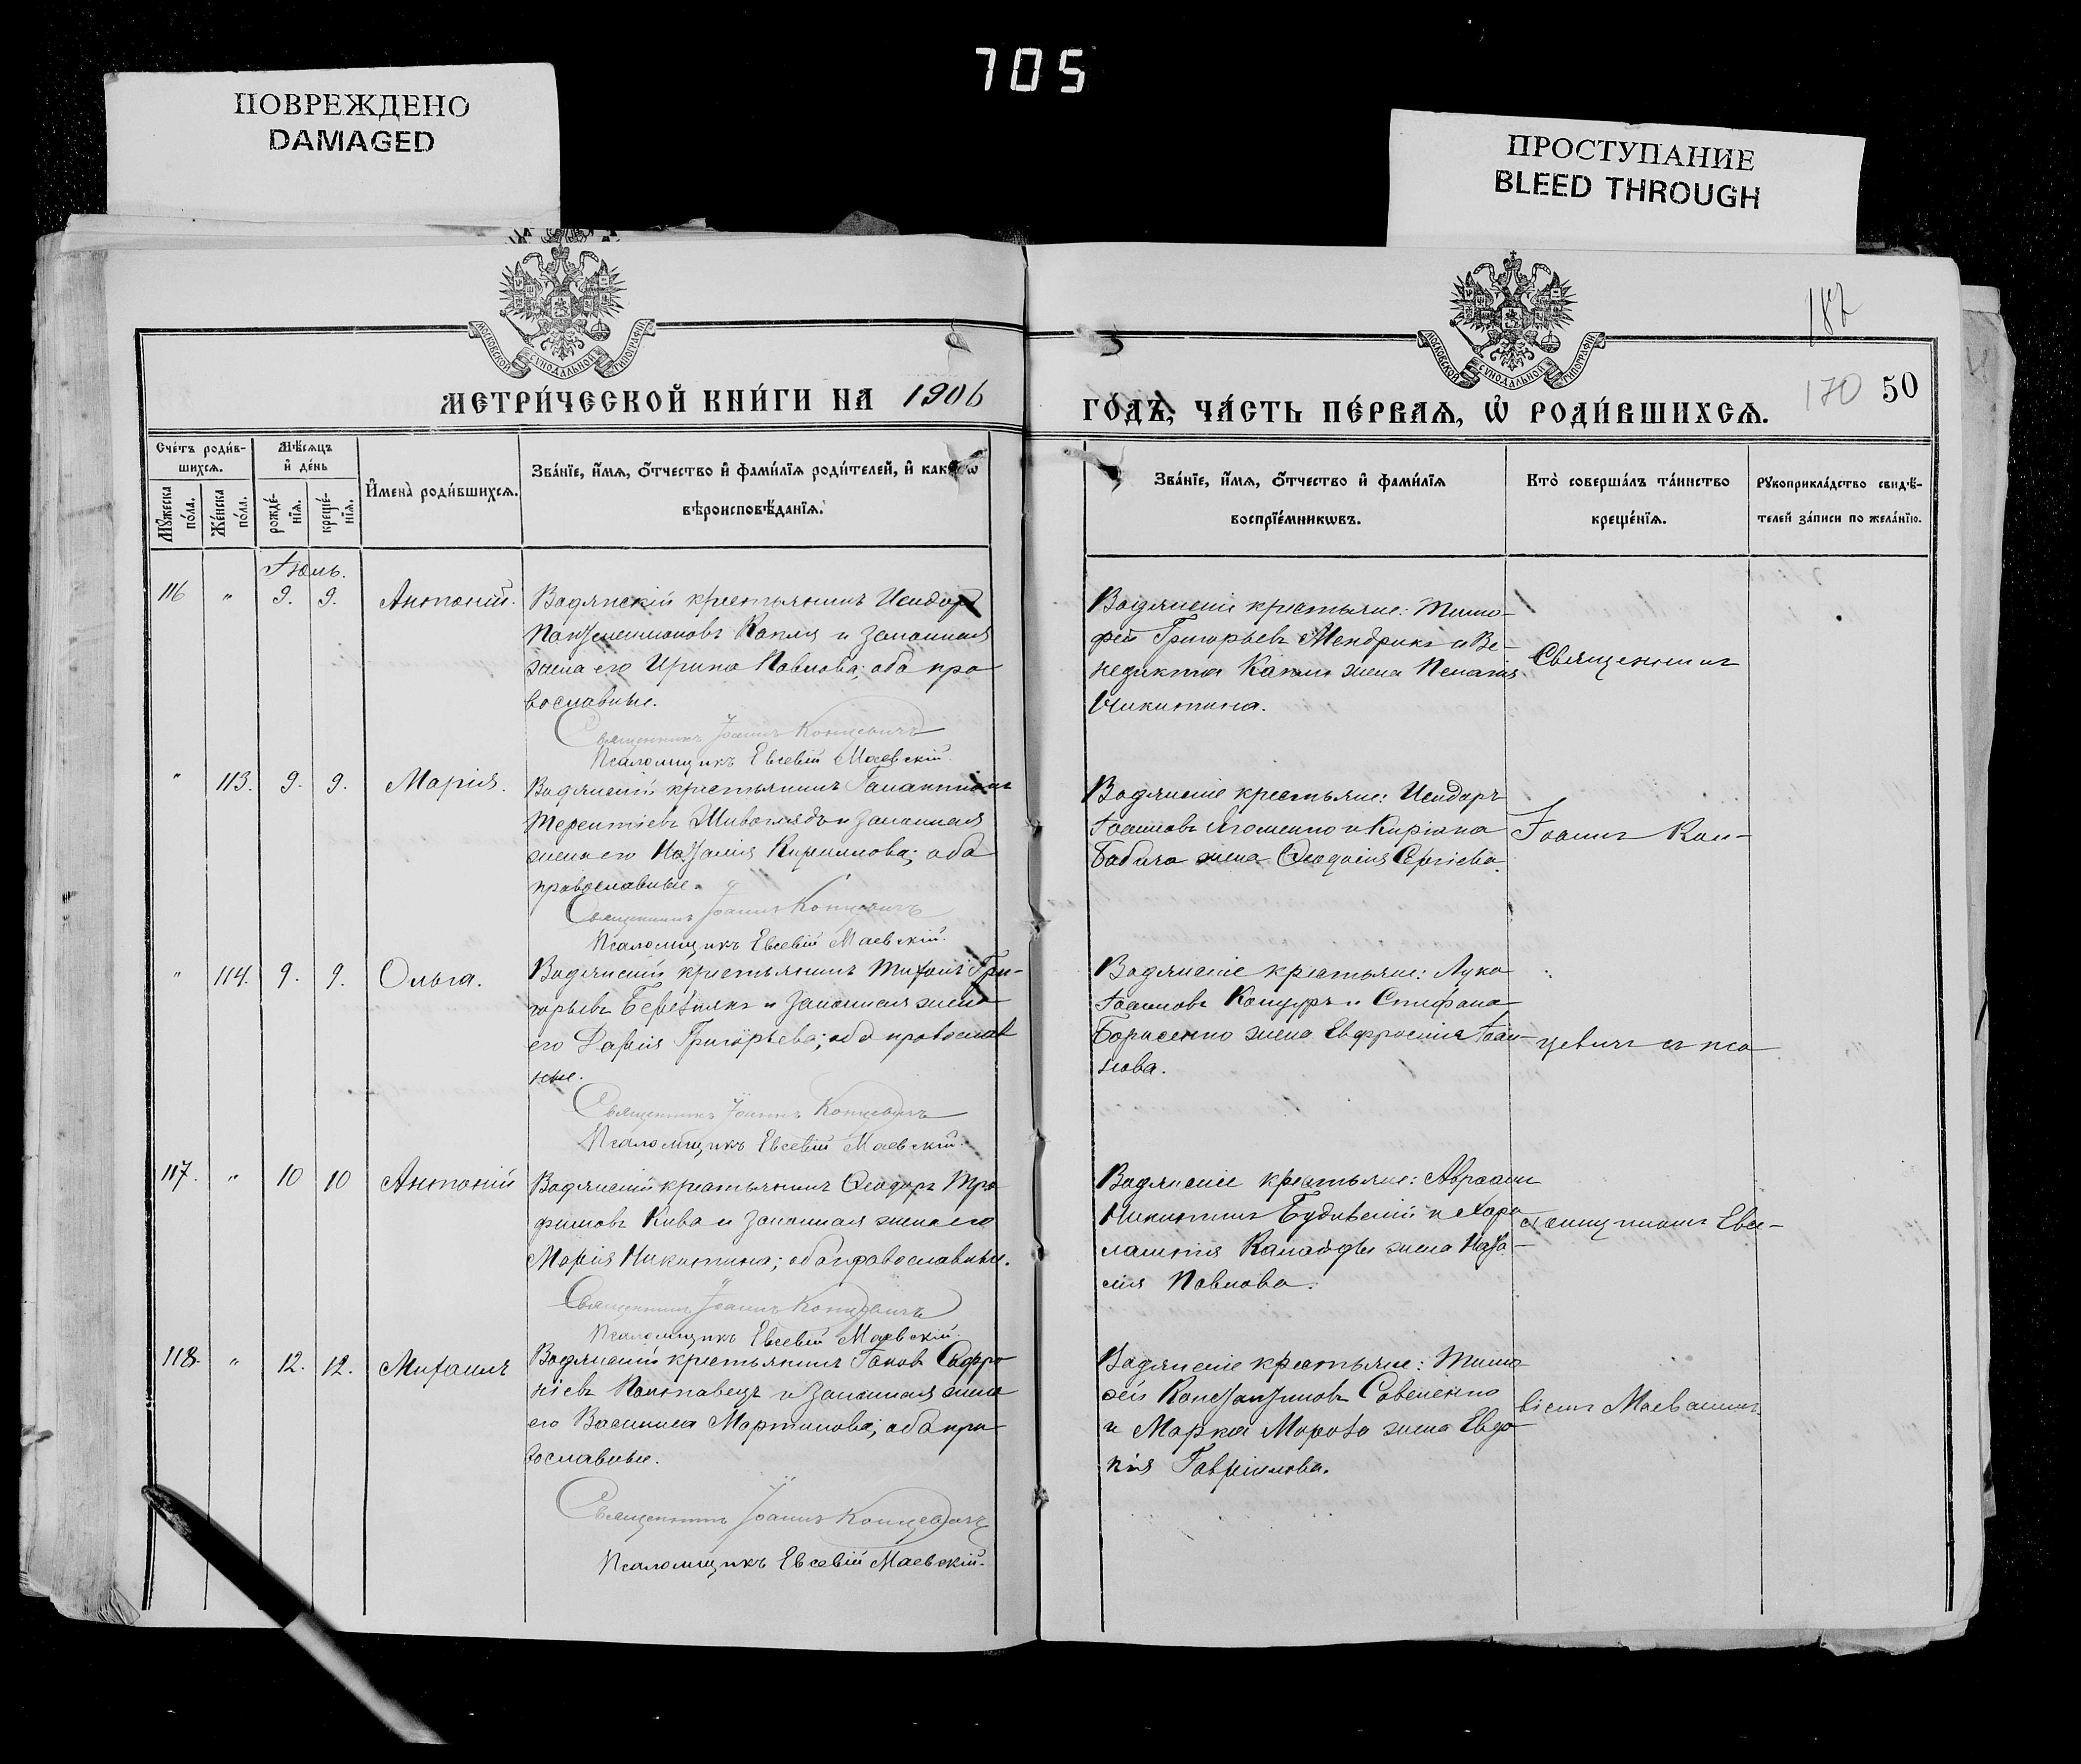 705
ПОВРЕЖДЕНО
DAMAGED
ПРОСТУПАНИЕ
BLEED THROUGH
МОСКОВСКОЙ СѴНОДАЛЬНОЙ ТИПОГРАФІИ
МОСКОВСКОЙ СѴНОДАЛЬНОЙ ТИПОГРАФІИ
187
МЕТРИ́ЧЕСКОЙ КНИ́ГИ НА 1906
ГО́ДЪ, ЧА́СТЬ ПЕ́РВАѦ, Ѡ҆ РОДИ́ВШИХСѦ.
170 50
Сче́тъ роди́в-
шихсѧ.
Мꙋ́жеска по́ла.
Же́нска по́ла.
Мѣ́сѧцъ
и҆ де́нь
рожде́-
нїѧ.
креще́-
нїѧ.
И҆мена̀ роди́вшихсѧ.
Зва́нїе, и҆́мѧ, ѻ҆́тчество и҆ фами́лїѧ роди́телей, и҆ како́гѡ
вѣроисповѣ́данїѧ.
Зва́нїе, и҆́мѧ, ѻ҆́тчество и҆ фами́лїѧ
воспрїе́мникѡвъ.
Кто̀ соверша́лъ та́инство
креще́нїѧ.
Рꙋкоприкла́дство свидѣ́-
телей за́писи по жела́нїю.
Іюль.
116 " 9. 9. Антоній.
Водянскій крестьянинъ Исидоръ
Пантелеимоновъ Капля и законная
жена его Ирина Павлова; оба пра
вославные.
Священникъ Іоаннъ Концевичъ
Псаломщикъ Евсевій Маевскій.
Водянскіе крестьяне: Тимо-
фей Григорьевъ Мендрикъ и Ве-
недикта Капли жена Пелагія
Никитина.
Священникъ
" 113. 9. 9. Марія.
Водянскій крестьянинъ Галактіонъ
Терентіевъ Живоглядъ и законная
жена его Наталія Кириллова; оба
православные.
Священникъ Іоаннъ Концевичъ
Псаломщикъ Евсевій Маевскій.
Водянскіе крестьяне: Исидоръ
Іоанновъ и Киріака
Бабича жена Ѳеодосія Сергіева.
Іоаннъ Кон-
" 114. 9. 9. Ольга.
Водянскій крестьянинъ Михаилъ Гри-
горьевъ Березнякъ и законная жена
его Дарія Григорьева; оба православ
ные.
Священникъ Іоаннъ Концевичъ
Псаломщикъ Евсевій Маевскій.
Водянскіе крестьяне: Лука
Іоанновъ Коцуръ и Стефана
Борисенко жена Евфросинія Іоан-
нова.
цевичъ съ пса
117. " 10 10 Антоній
Водянскій крестьянинъ Ѳеодоръ Тро
фимовъ Кива и законная жена его
Марія Никитина; оба православные.
Священникъ Іоаннъ Концевичъ
Псаломщикъ Евсевій Маевскій.
Водянскіе крестьяне: Авраамъ
Никитинъ Будивскій и Хара
лампія Калайды жена Ната-
лія Павлова.
ломщикомъ Евсе-
118. " 12. 12. Михаилъ
Водянскій крестьянинъ Іаковъ Софро
ніевъ Полтавецъ и законная жена
его Василиса Мартинова; оба пра
вославные.
Священникъ Іоаннъ Концевичъ
Псаломщикъ Евсевій Маевскій.
Водянскіе крестьяне: Тимо
фей Константиновъ Савченко
и Марка Мороза жена Евдо
кія Гавріилова.
віемъ Маевскимъ.